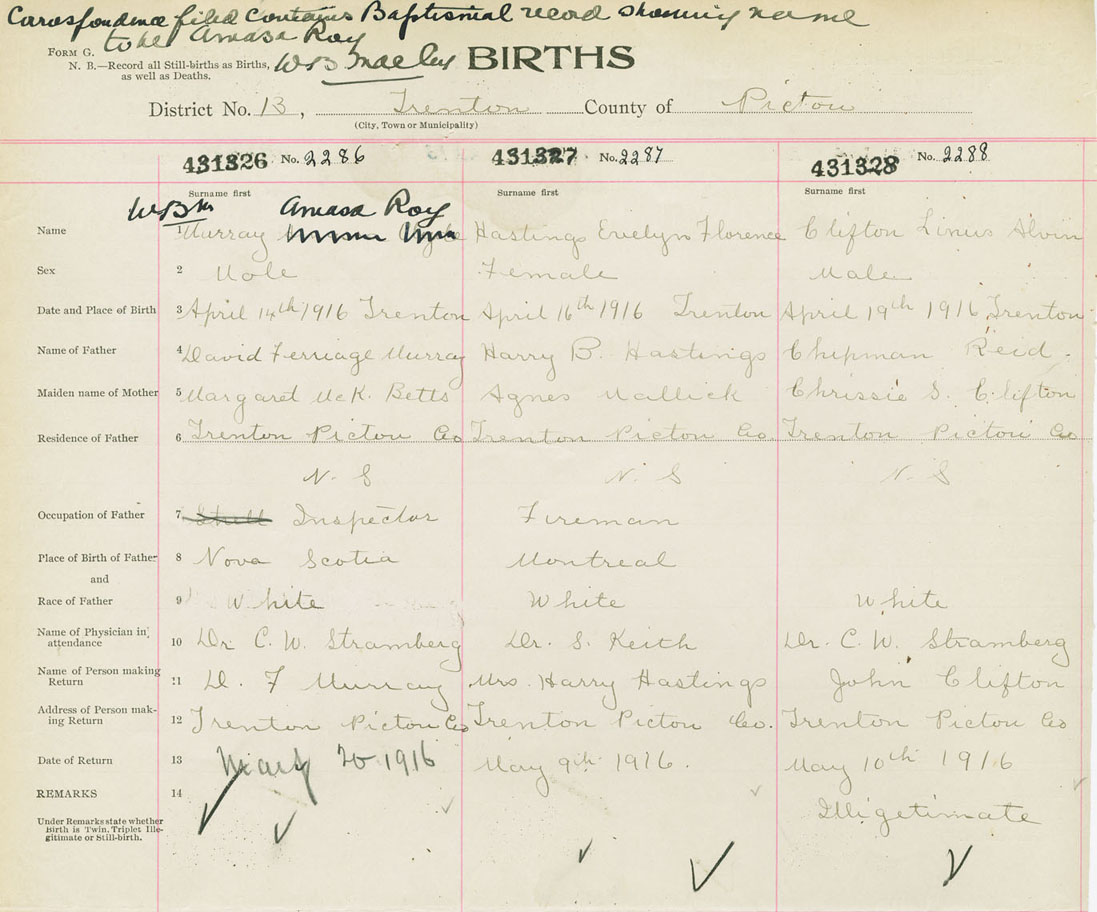 Carospondence filed contains Baptismal record showing name
to be Amasa Roy
FORM G.
N. B.—Record all Still-births as Births,
as well as Deaths.
BIRTHS
District No. 13, Trenton County of Pictou
(City, Town or Municipality)
431326 No. 2286 431327 No. 2287 431328 No. 2288
Surname first Surname first Surname first
Amasa Roy
Name 1 Murray Hastings Evelyn Florence Clifton Linius Alvin
Sex 2 Male Female Male
Date and Place of Birth 3 April 14th 1916 Trenton April 16th 1916 Trenton April 19th 1916 Trenton
Name of Father 4 David Ferriage Murray Harry B. Hastings Chipman Reid
Maiden name of Mother 5 Margaret McK. Betts Agnes Mallick Chrissie S. Clifton
Residence of Father 6 Trenton Pictou Co Trenton Pictou Co. Trenton Pictou Co
N. S N. S N. S
Occupation of Father 7 Inspector Fireman
Place of Birth of Father 8 Nova Scotia Montreal
and
Race of Father 9 White White White
Name of Physician in
attendance 10 Dr C. W. Stramberg Dr. S. Keith Dr. C. W. Stramberg
Name of Person making
Return 11 D. F Murray Mrs. Harry Hastings John Clifton
Address of Person mak-
ing Return 12 Trenton Pictou Co Trenton Pictou Co. Trenton Pictou Co
Date of Return 13 20 1916 May 9th 1916. May 10th 1916
REMARKS 14 Illigetimate
Under Remarks state whether
Birth is Twin, Triplet Ille-
gitimate or Still-birth.